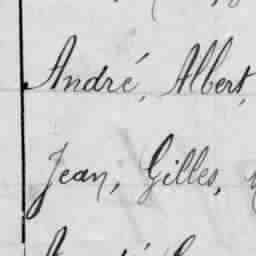 André, Albert,
Jean, Gilles,